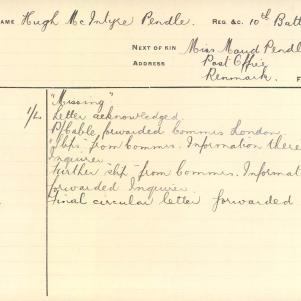 NAME Hugh McIntyre Pendle. REG &C. 10th Batt
NEXT OF KIN Miss Maud Pendl
ADDRESS Post Office
Renmark. F
"Missing"
1/2 Letter acknowledged.
P/Cable forwarded Commrs London
"slip" from Commrs. Information there
Inquirer.
Further "slip" from Commrs. Informat
forwarded Inquirer.
Final circular letter forwarded